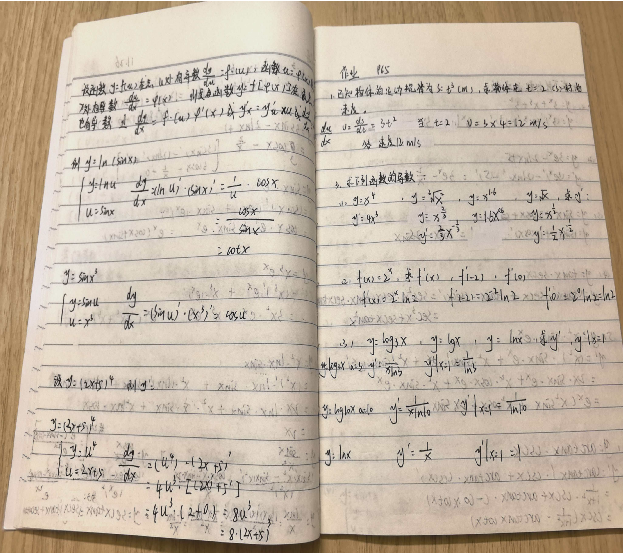 设函数 y=f(u) 在点 u 对有导数 dy/du = f'(u), 函数 u=φ(x)
对有导数 du/dx = φ'(x) 则复合函数 y=f[φ(x)] 在点
也有导数 且 dy/dx = f'(u) φ'(x) 或 y'x = y'u·u'x
例 y=ln(sinx)
{ y=lnu dy/dx =(lnu)'·(sinx)'= 1/u · cosx
u=sinx
= cosx/sinx
= cotx
y=sinx³
{ y=sinu dy/dx =(sinu)'·(x³)'= cosu
u=x³
设 y=(2x+5)⁴ 则 y'
y=(2x+5)⁴
{ y=u⁴ dy/dx =(u⁴)'·(2x+5)'
u=2x+5
=4u³·[(2x)'+5']
=4u³·(2+0)=8u³
=8·(2x+5)³
作业 P65
1.已知物体的运动规律为 s=t³(m), 求物体在 t=2(s)时的
速度.
du/dx v= ds/dt =3t² 当 t=2 v=3×4=12m/s
速度12m/s
3.求下列函数的导数:
1. y=x⁴ , y=³√x² , y=x^1.6 y=√x 求y'
y'=4x³ y=x^2/3 y=1.6x^0.6 y=x^1/2
y'=2/3 x^-1/3 y'=1/2 x^-1/2
2. f(x)=2ˣ, 求 f'(x), f'(-2), f'(0)
f'(x)=2ˣln2 f'(-2)=2⁻²ln2 f'(0)=2⁰ln2=ln2
3. y=log₃x , y=lgx , y=lnx 求y', y'|x=1
y'|x=1
y=log₁₀x a=10 y'= 1/xln10 y'|x=1 = 1/ln10
y=lnx y'= 1/x y'|x=1 =1